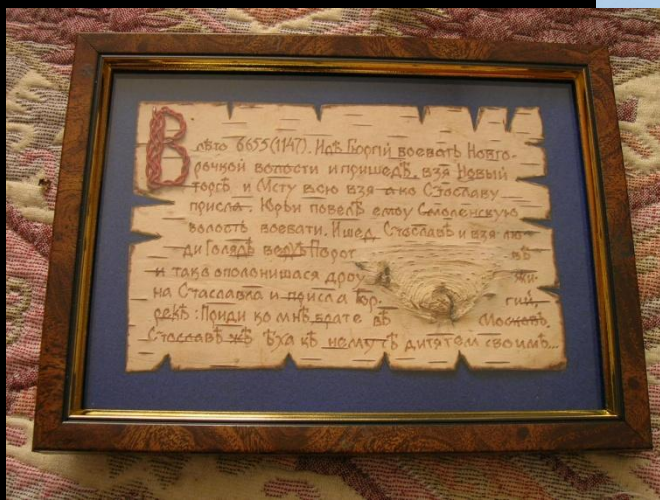 В лѣто 6655(1147). Идѣ Гюргiй воеватъ Новго-
рочкой волости и пришедъ, взя Новый
торгъ и Мсту всю взя а ко Стославу
присла. Юрьи повелѣ емоу Смоленскую
волость воевати. И шед Стославъ и взя лю-
ди Голядь верхъ Порот въ
и такѣ ополонишася дроу жи
на Стаславля и присла Гюр. гий,
рекѣ: Приди ко мнѣ брате въ Московъ.
Стославъ жѣ ѣха къ нему съ дитятем своимъ...